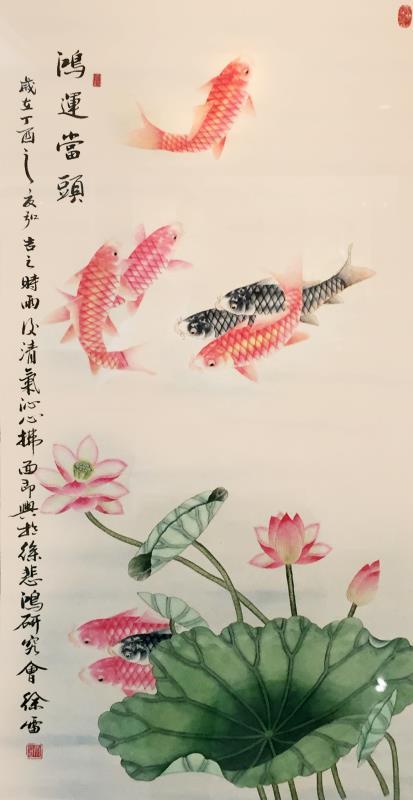 鴻運當頭
歲在丁酉之夏弘吉之時雨後清氣沁心拂面即興於徐悲鴻研究會徐雷